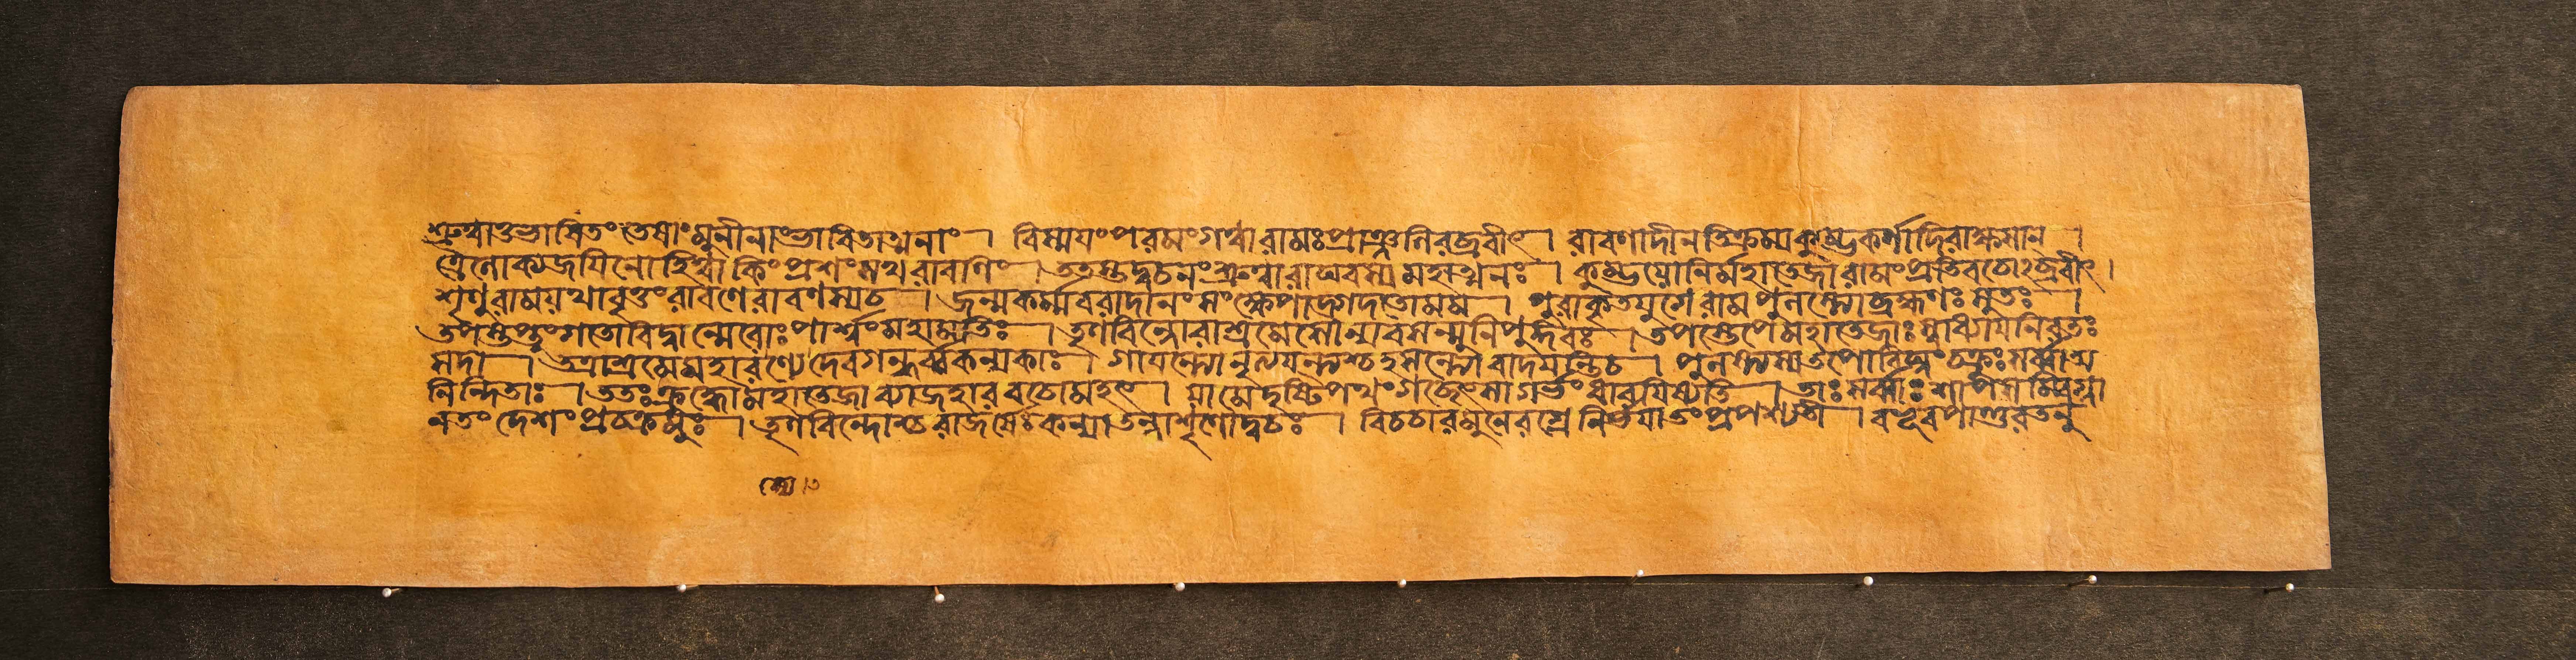 শ্রুত্বাতুভাষিতংতেষাংমুনীনাংভাবিতাত্মনাং । বিস্ময়ংপরমংগত্বারামঃপ্রাঞ্জলিরব্রবীৎ । রাবণাদীনতিক্রম্যকুম্ভকর্ণাদিরাক্ষসান্ ।
ত্রৈলোক্যজয়িনোহিত্বাকিংপ্রশংসথরাবণিং । ততস্তদ্বচনংশ্রুত্বারাঘবস্যমহাত্মনঃ । কুম্ভয়োনির্মহাতেজারামংপ্রতিবচোঽব্রবীৎ ।
শৃণুরাময়থাবৃত্তংরাবণেরাবণস্যচ । জন্মকর্ম্মবরাদানংসংক্ষেপাদ্গদতোমম । পুরাকৃতযুগেরামপুলস্ত্যোব্রহ্মণঃসুতঃ ।
তপস্তপ্তুংগতোবিদ্বান্মেরোঃপার্শ্বংমহামতিঃ । তৃণবিন্দোরাশ্রমেসৌন্যবসন্মুনিপুঙ্গবঃ । তপস্তেপেমহাতেজাঃস্বাধ্যায়নিরতঃ
সদা । তত্রাশ্রমেমহারণ্যেদেবগন্ধর্ব্বকন্যকাঃ । গায়ন্ত্যোননৃতুস্তত্রহসন্ত্যোবাদয়ন্তিচ । পুলস্ত্যস্যতপোবিঘ্নংচক্রুঃসর্ব্বাঅ
নিন্দিতাঃ । ততঃক্রুদ্ধোমহাতেজাব্যাজহারবচোমহৎ । যামেদৃষ্টিপথংগচ্ছেৎসাগর্ভংধারয়িষ্যতি । তাঃসর্ব্বাঃশাপসংবিগ্না
নতংদেশংপ্রচক্রমুঃ । তৃণবিন্দোস্তুরাজর্ষেঃকন্যাতন্নাশৃণোদ্বচঃ । বিচচারমুনেরগ্রেনির্ভয়াতংপ্রপশ্যতী । বভূবপাণ্ডুরতনু